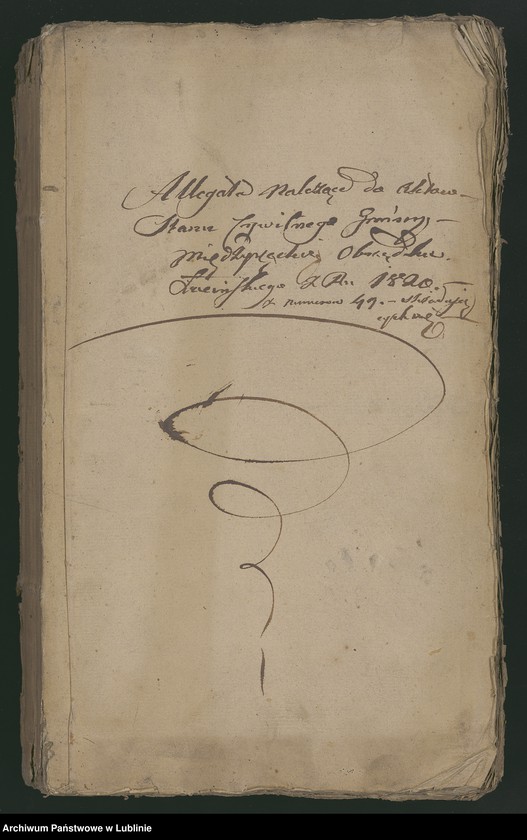 Allegata należące do Aktow
Stanu Cywilnego Gminy
Międzyrzeckiej Obrządku
Łacińskiego z Ru 1820.
z numerow 49. – składające
się
Archiwum Państwowe w Lublinie